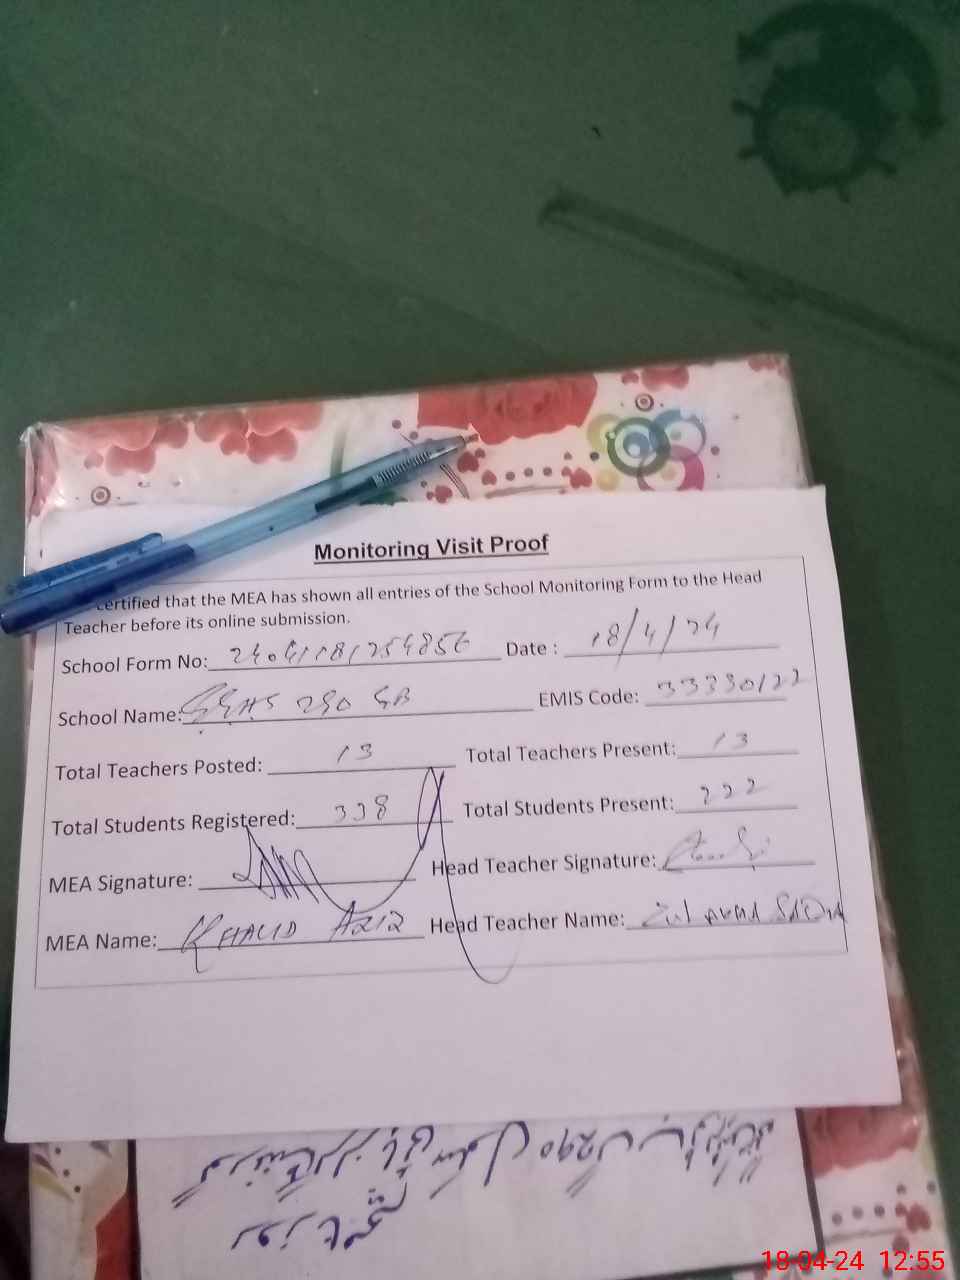 Monitoring Visit Proof
certified that the MEA has shown all entries of the School Monitoring Form to the Head
Teacher before its online submission.
School Form No: Date : 18/4/24
School Name: GGHS 290 GB EMIS Code: 33330122
Total Teachers Posted: 13 Total Teachers Present: 13
Total Students Registered: 338 Total Students Present: 222
MEA Signature: Head Teacher Signature:
MEA Name: KHALID AZIZ Head Teacher Name:
گورنمنٹ گرلز ہائی سکول
18-04-24 12:55